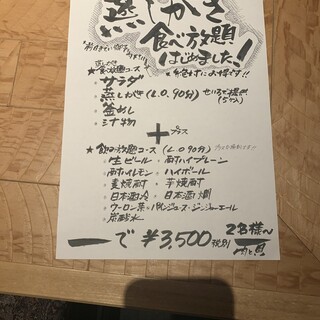 蒸しがき
食べ放題
はじめました!
絶対にお得です!!
蒸しがき
★食べ放題コース
・サラダ
・蒸しがき (L.O.90分) せいろで提供
(5ケ入)
・釜めし
・汁物
+プラス
★飲み放題コース (L.O.90分)
・生ビール ・酎ハイプレーン
・酎ハイレモン ・ハイボール
・麦焼酎 ・芋焼酎
・日本酒冷 ・日本酒燗
・ウーロン茶・オレンジジュース・ジンジャーエール
・炭酸水
で ¥3,500税別 2名様〜